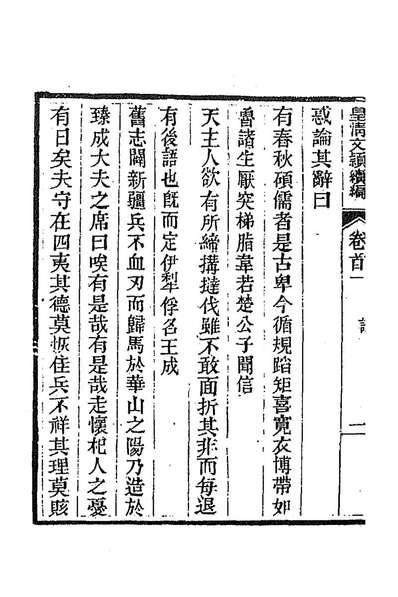 皇淸文穎續編
卷首一
詩
一
惑論其辭曰
有春秋碩儒者是古卑今循規蹈矩喜寬衣博帶如
魯諸生厭突梯脂韋若楚公子聞信
天主人欲有所締搆撻伐雖不敢面折其非而每退
有後語也旣而定伊犁俘名王成
舊志闢新疆兵不血刃而歸馬於華山之陽乃造於
臻成大夫之席曰唉有是哉有是哉走懷杞人之憂
有日矣夫守在四夷其德莫恢佳兵不祥其理莫賅